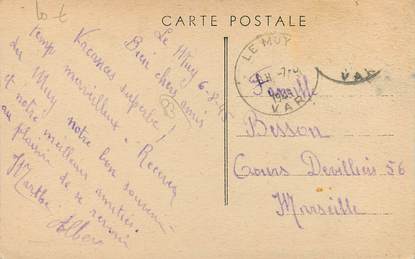 CARTE POSTALE
Le Muy 6-8-35
Bien chers amis
Vacances superbe!
temps merveilleux. Recevez
du Muy notre bon souvenir
et notre meilleure amitiés.
au plaisir de se revoir
Marthe Albert
LE MUY
VAR
Famille
Besson
Cours Devilliers 56
Marseille